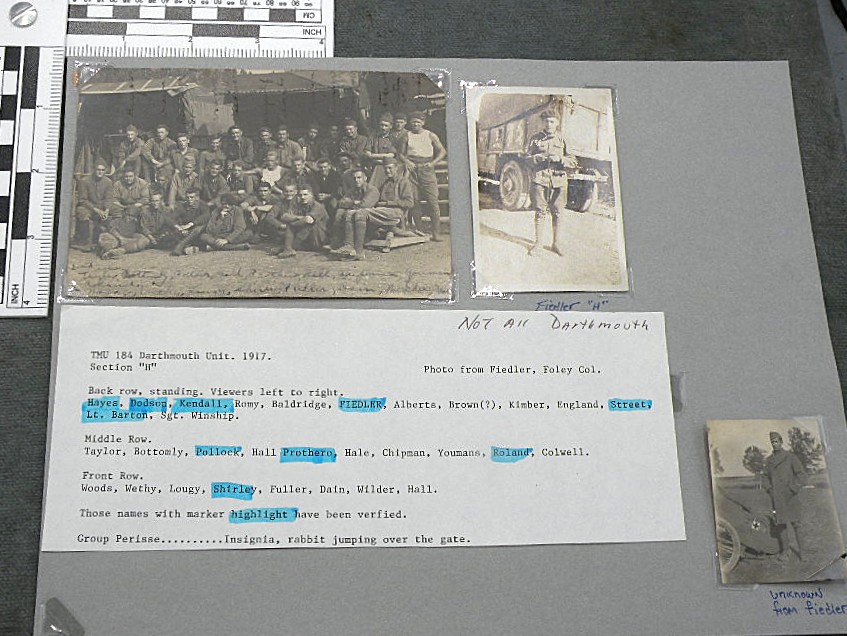 CM
INCH
1 2 3 4
INCH
1
2
3
4
Fiedler "H"
Not All Dartmouth
TMU 184 Dartmouth Unit. 1917.
Section "H"
Photo from Fiedler, Foley Col.
Back row, standing. Viewers left to right.
Hayes, Dodson, Kendall, Romy, Baldridge, FIEDLER, Alberts, Brown(?), Kimber, England, Street,
Lt. Barton, Sgt. Winship.
Middle Row.
Taylor, Bottomly, Pollock, Hall Prothero, Hale, Chipman, Youmans, Roland, Colwell.
Front Row.
Woods, Wethy, Lougy, Shirley, Fuller, Dain, Wilder, Hall.
Those names with marker highlight have been verfied.
Group Perisse..........Insignia, rabbit jumping over the gate.
unknown
from fiedler